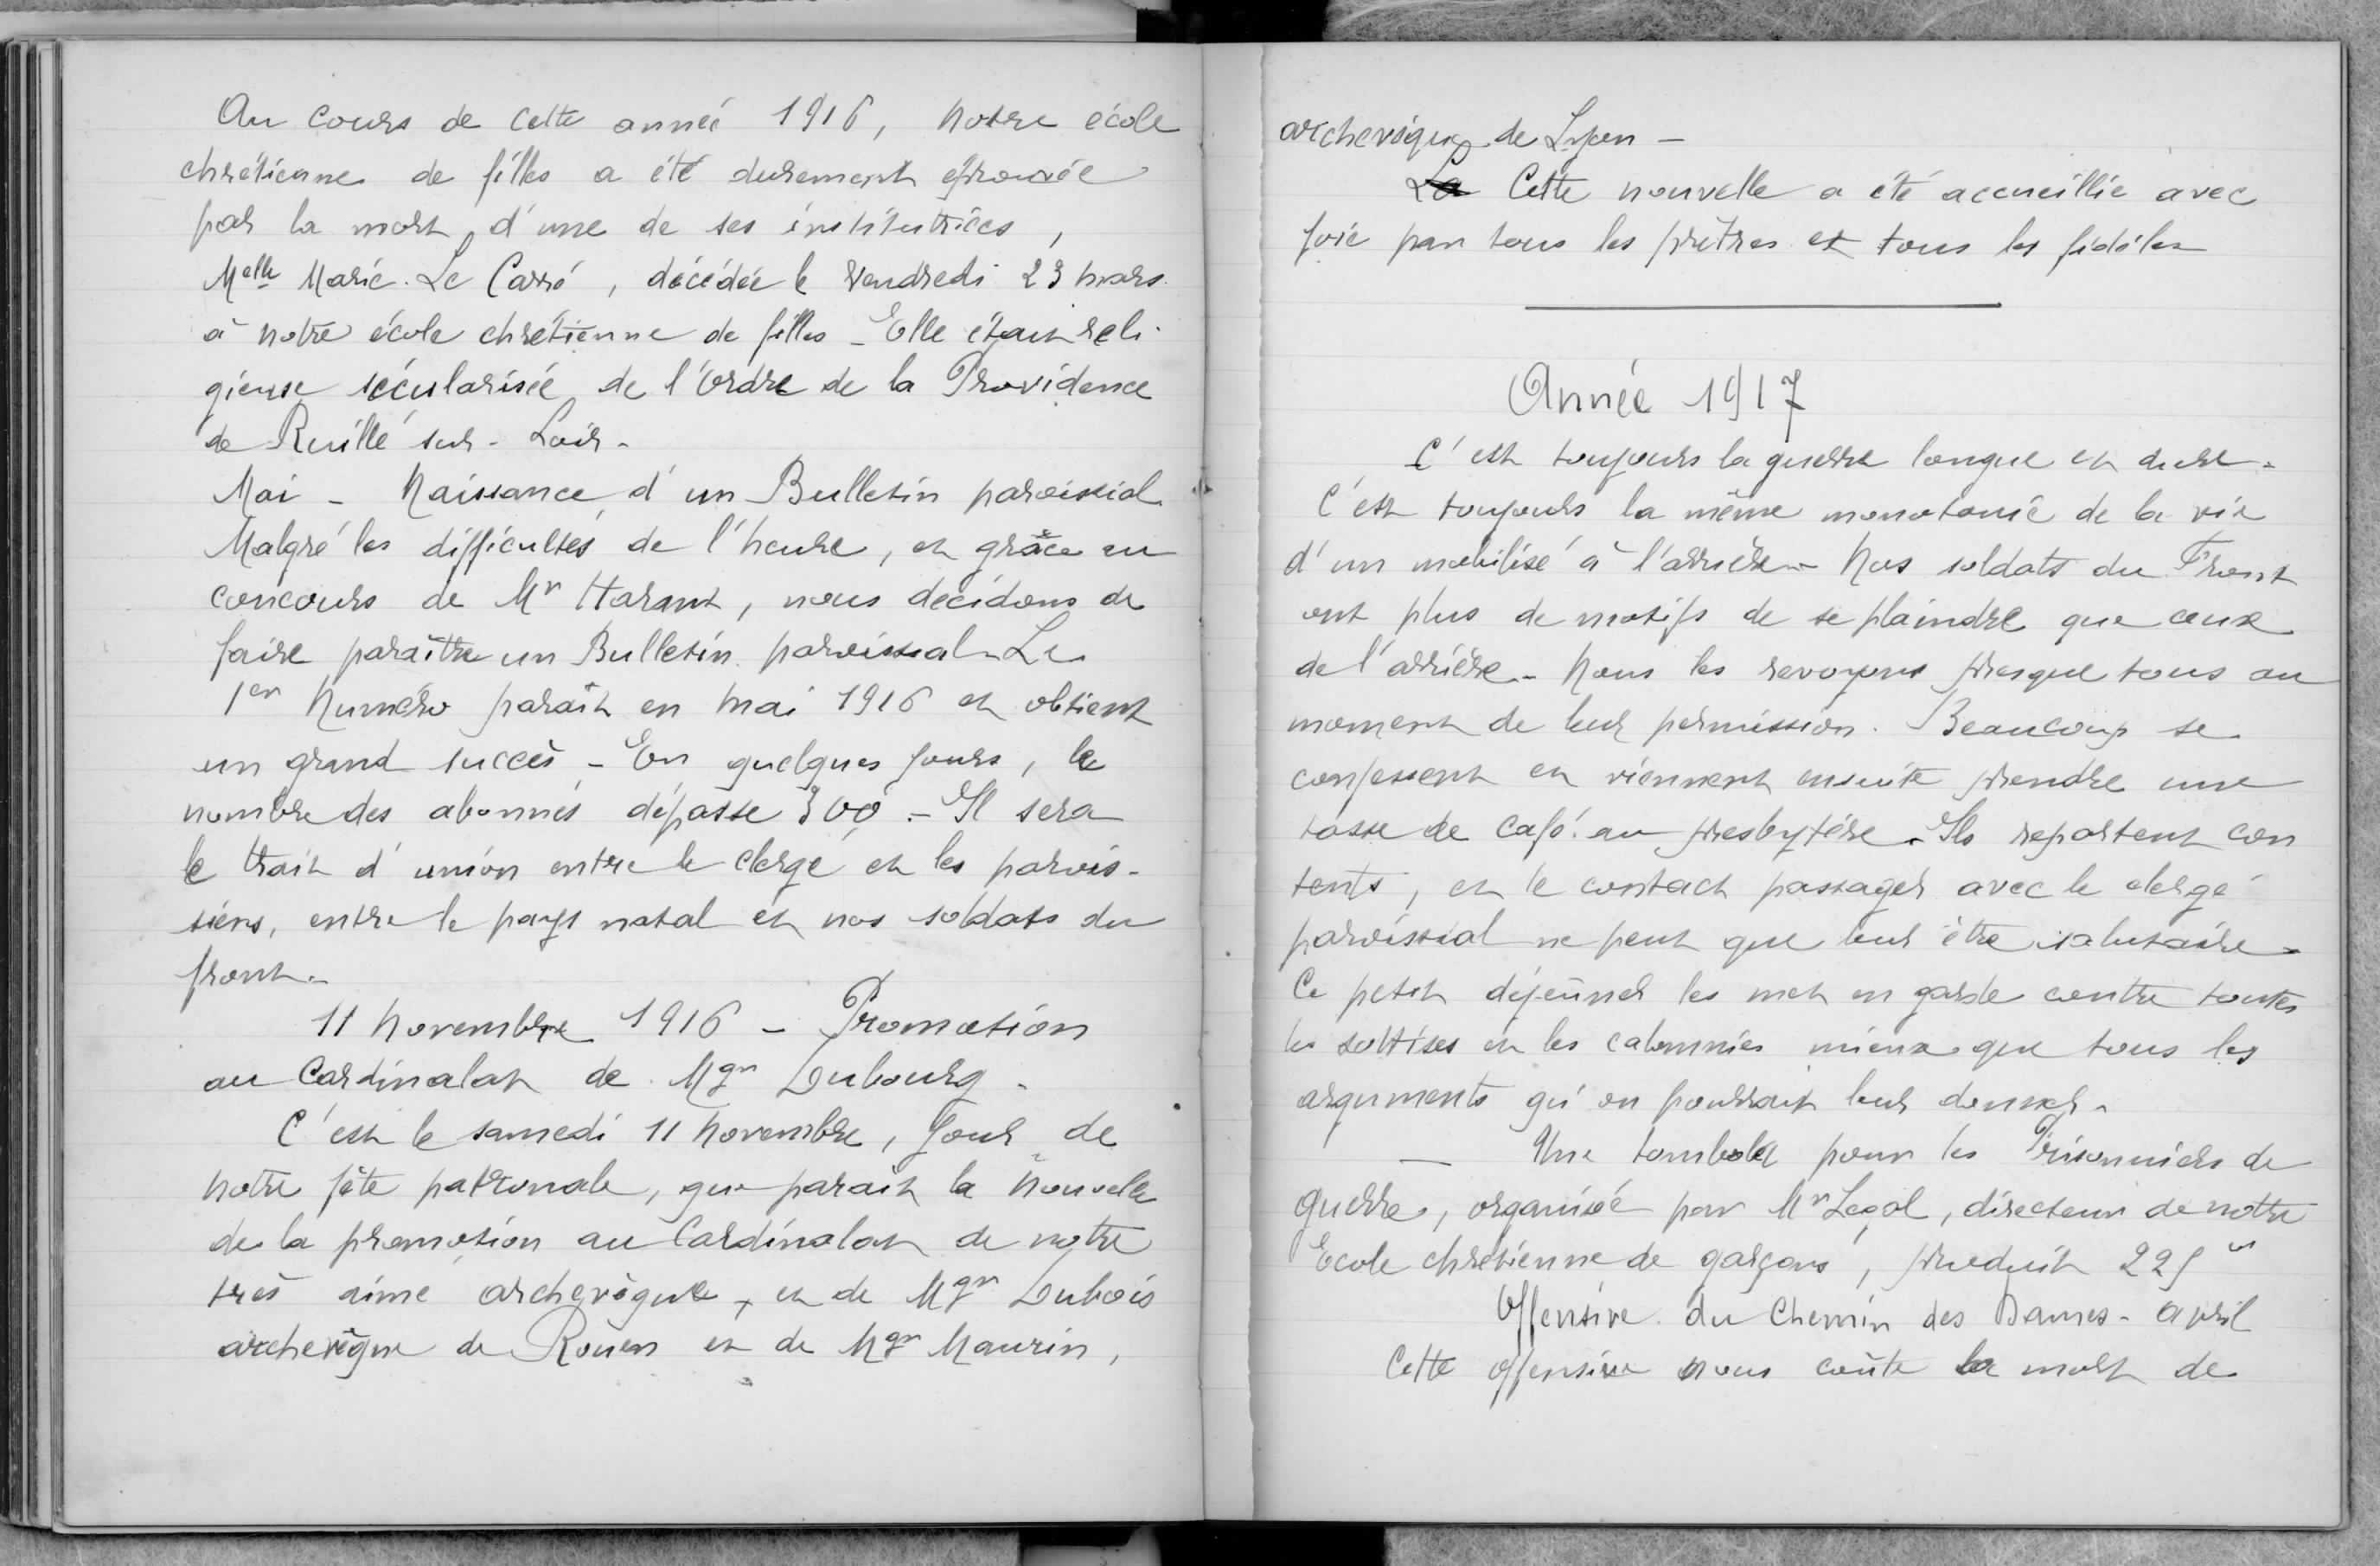 Au cours de cette année 1916, notre école
chrétienne de filles a été durement éprouvée
par la mort d'une de ses institutrices,
Melle Marie Le Carré, décédée le vendredi 23 mars
à notre école chrétienne de filles - Elle était reli-
gieuse sécularisée de l'ordre de la Providence
de Ruillé sur-Loir-
Mai - Naissance d'un Bulletin paroissial
Malgré les difficultés de l'heure, et grâce au
concours de Mr Harant, nous décidons de
faire paraître un Bulletin paroissial - Le
1er Numéro paraît en mai 1916 et obtient
un grand succès - En quelques jours, le
nombre des abonnés dépasse 300 - Il sera
le trait d'union entre le clergé et les parois-
siens, entre le pays natal et nos soldats du
front -
11 Novembre 1916 - Promotion
au Cardinalat de Mgr Dubourg -
C'est le samedi 11 novembre, jour de
notre fête patronale, que paraît la nouvelle
de la promotion au Cardinalat de notre
très aimé archevêque, et de Mgr Dubois
archevêque de Rouen et de Mgr Maurin,
archevêque de Lyon -
La Cette nouvelle a été accueillie avec
joie par tous les prêtres et tous les fidèles
Année 1917
C'est toujours la guerre longue et dure -
C'est toujours la même monotonie de la vie
d'un mobilisé à l'arrière - Nos soldats du Front
ont plus de motifs de se plaindre que ceux
de l'arrière - Nous les revoyons presque tous au
moment de leur permission. Beaucoup se
confessent et viennent ensuite prendre une
tasse de café au presbytère. Ils repartent con
tents, et le contact passager avec le clergé
paroissial ne peut que leur être salutaire -
Ce petit déjeûner les met en garde contre toutes
les sottises et les calomnies mieux que tous les
arguments qu'on pourrait leur donner -
- Une tombola pour les Prisonniers de
guerre, organisée par Mr Legal, directeur de notre
Ecole chrétienne de garçons, produit 225
Offensive du Chemin des Dames - avril
Cette offensive nous coûte la mort de